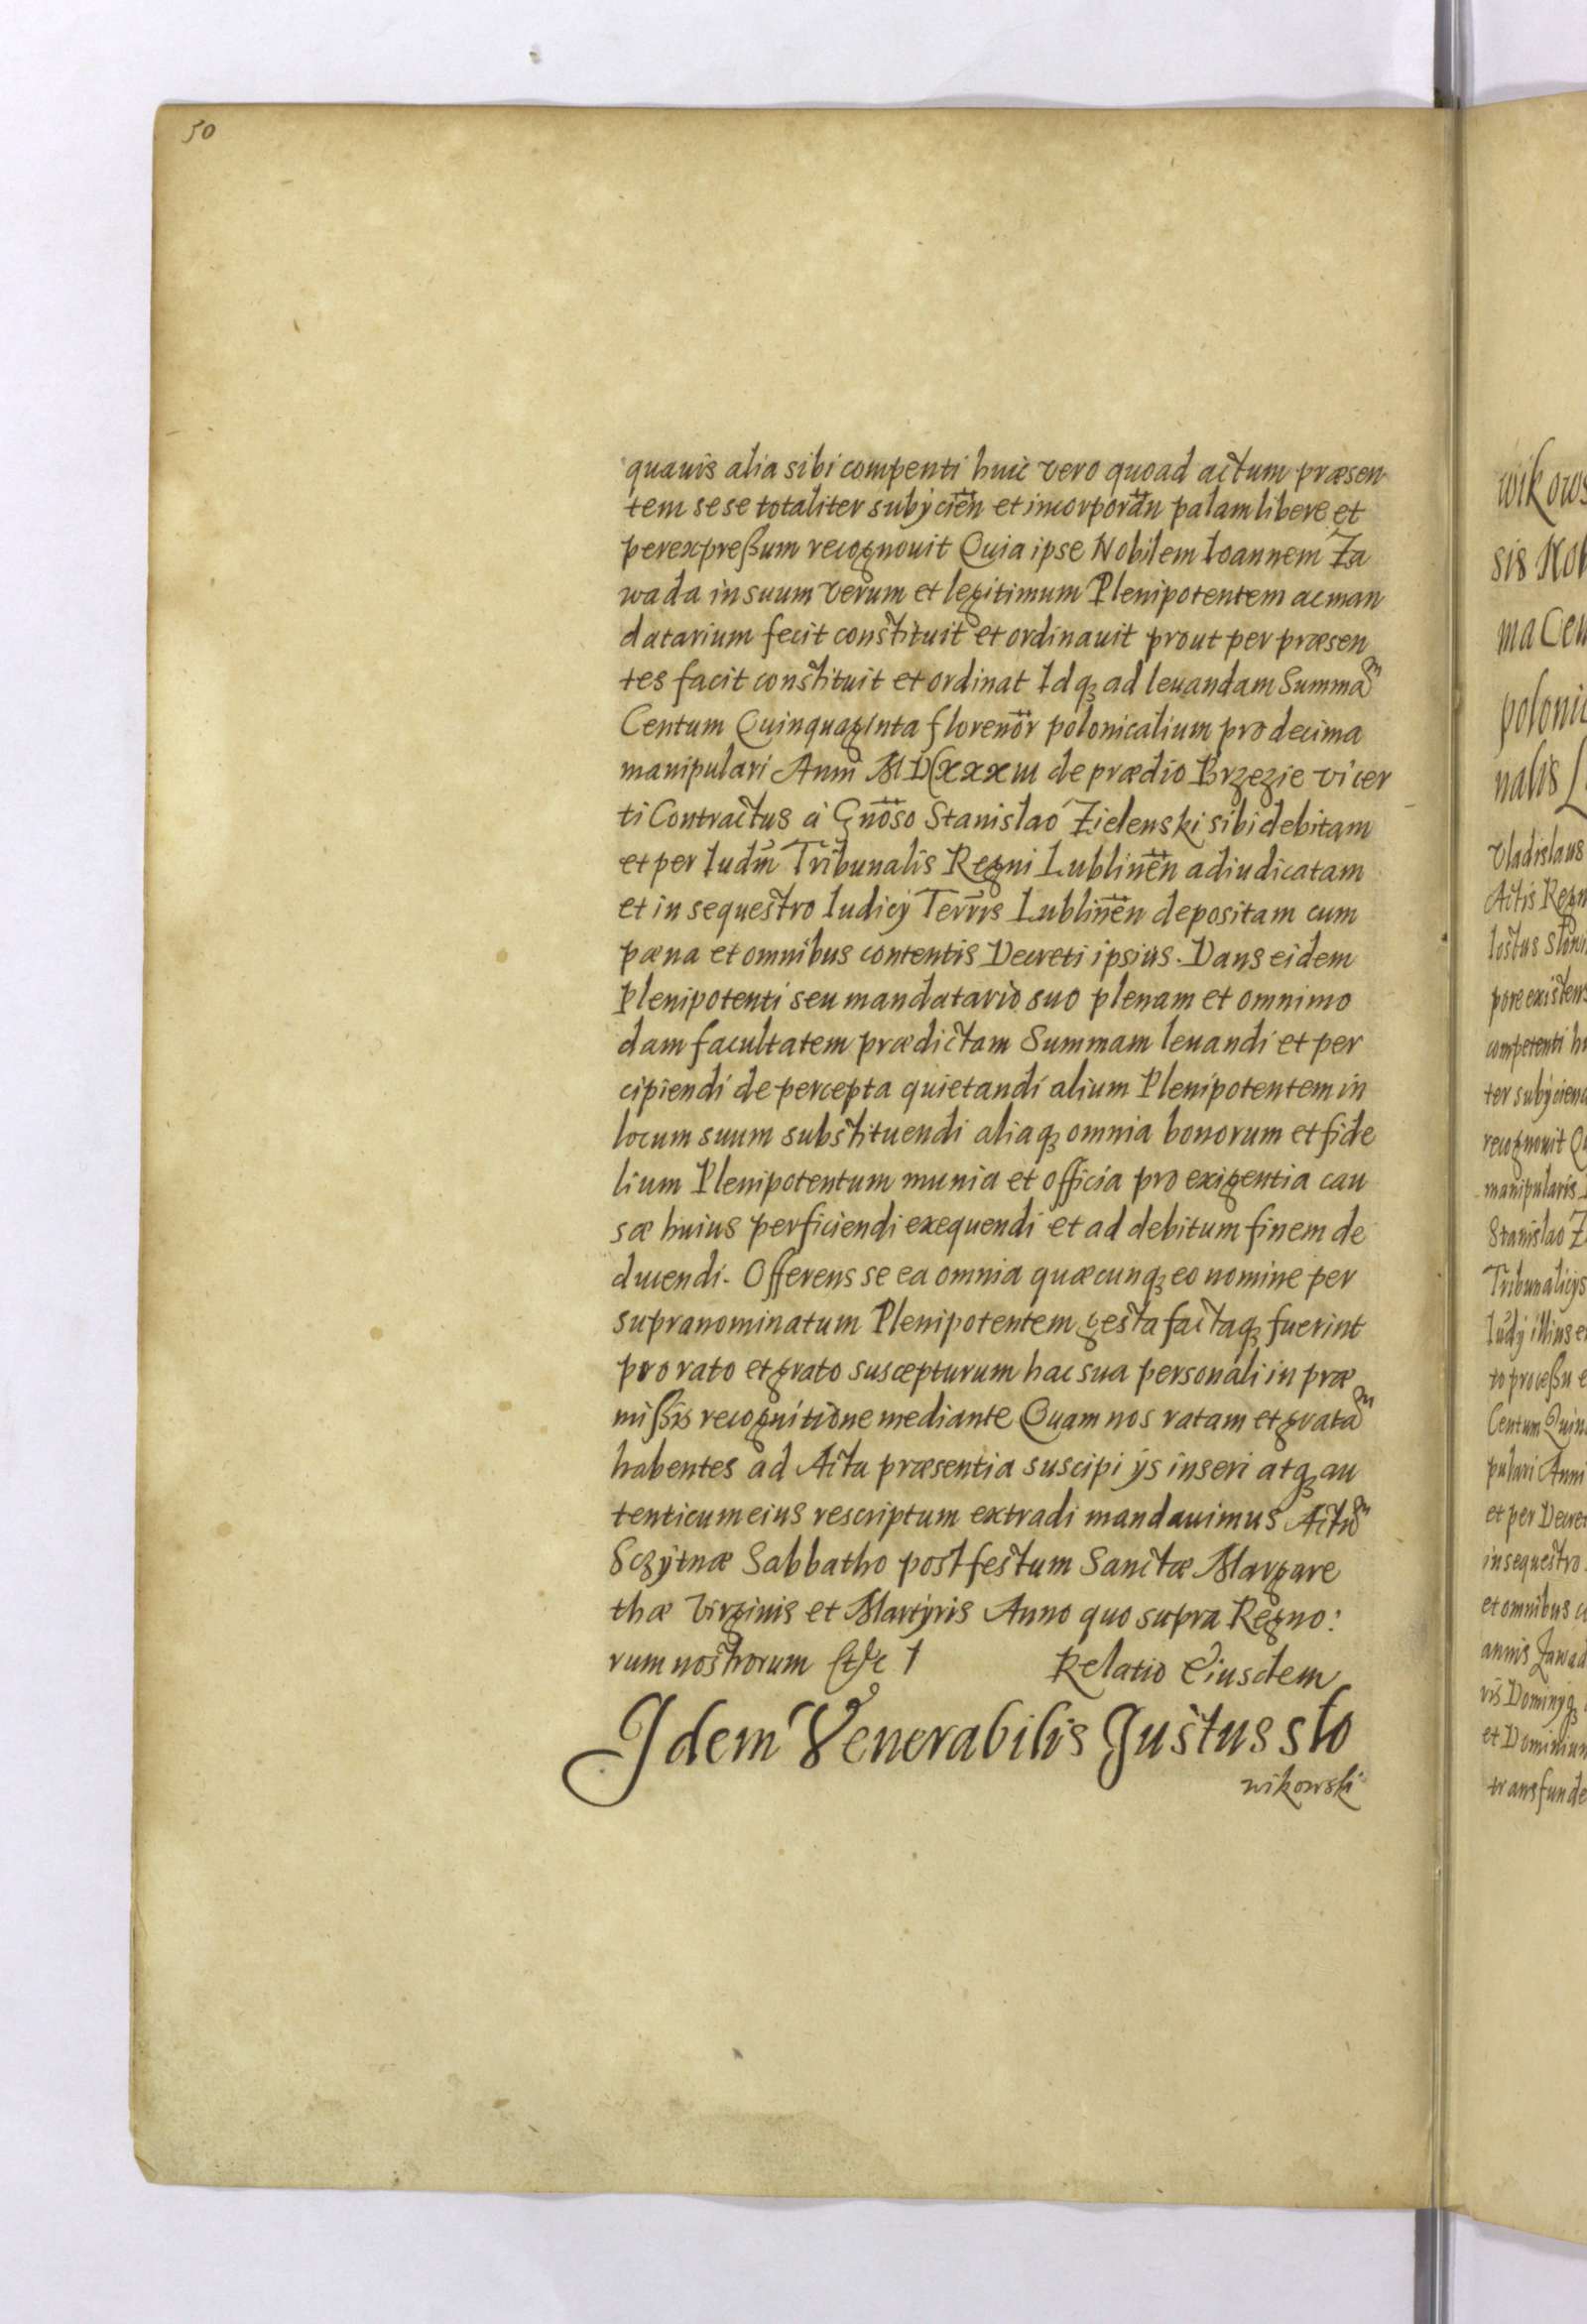 50
quauis alia sibi compenti huic vero quoad actum præsen
tem sese totaliter subÿcien̄ et incorporan̄ palam libere et
perexpreßum recognouit Quia ipse Nobilem Ioannem Za
wada in suum verum et legitimum Plenipotentem ac man
datarium fecit constituit et ordinauit prout per præsen
tes facit constituit et ordinat Idqꝫ ad leuandam Summaᵐ
Centum Quinquaginta florenor̄ polonicalium pro decima
manipulari Anni MDCxxxiii de prædio Brzezie vi cer
ti Contractus à Gnōso Stanislao Zielenski sibi debitam
et per Iudm̄ Tribunalis Regni Lublinen̄ adiudicatam
et in sequestro Iudicÿ Terrīs Lublinen̄ depositam cum
pæna et omnibus contentis Decreti ipsius. Dans eidem
Plenipotenti seu mandatario suo plenam et omnimo
dam facultatem prædictam Summam leuandi et per
cipiendi de percepta quietandi alium Plenipotentem in
locum suum substituendi aliaqꝫ omnia bonorum et fide
lium Plenipotentum munia et officia pro exigentia cau
sæ huius perficiendi exequendi et ad debitum finem de
ducendi. Offerens se ea omnia quæcunqꝫ eo nomine per
supranominatum Plenipotentem gesta factaqꝫ fuerint
pro rato et grato suscepturum hac sua personali in præ
mißis recognitione mediante Quam nos ratam et grataᵐ
habentes ad Acta præsentia suscipi ÿs inseri atqꝫ au
tenticum eius rescriptum extradi mandauimus Actuᵐ
Sczÿtnæ Sabbatho post festum Sanctæ Margare
thæ Virginis et Martÿris Anno quo supra Regno:
rum nostrorum Relatio Eiusdem
Idem Venerabilis Justus slo
wikowski
wikows
sis Nob
ma Cen
polonic
nalis L
Vladislaus
Actis Regn
Iostus Slowi
pore existens
competenti hu
ter subÿciend
recognouit Qu
manipularis
Stanislao Z
Tribunalicÿs
Iudÿ illius e
to proceßu e
Centum Quin
pulari Anni
et per Decret
in sequestro
et omnibus c
annis Zawad
ris Dominÿqꝫ
et Dominium
transfunde